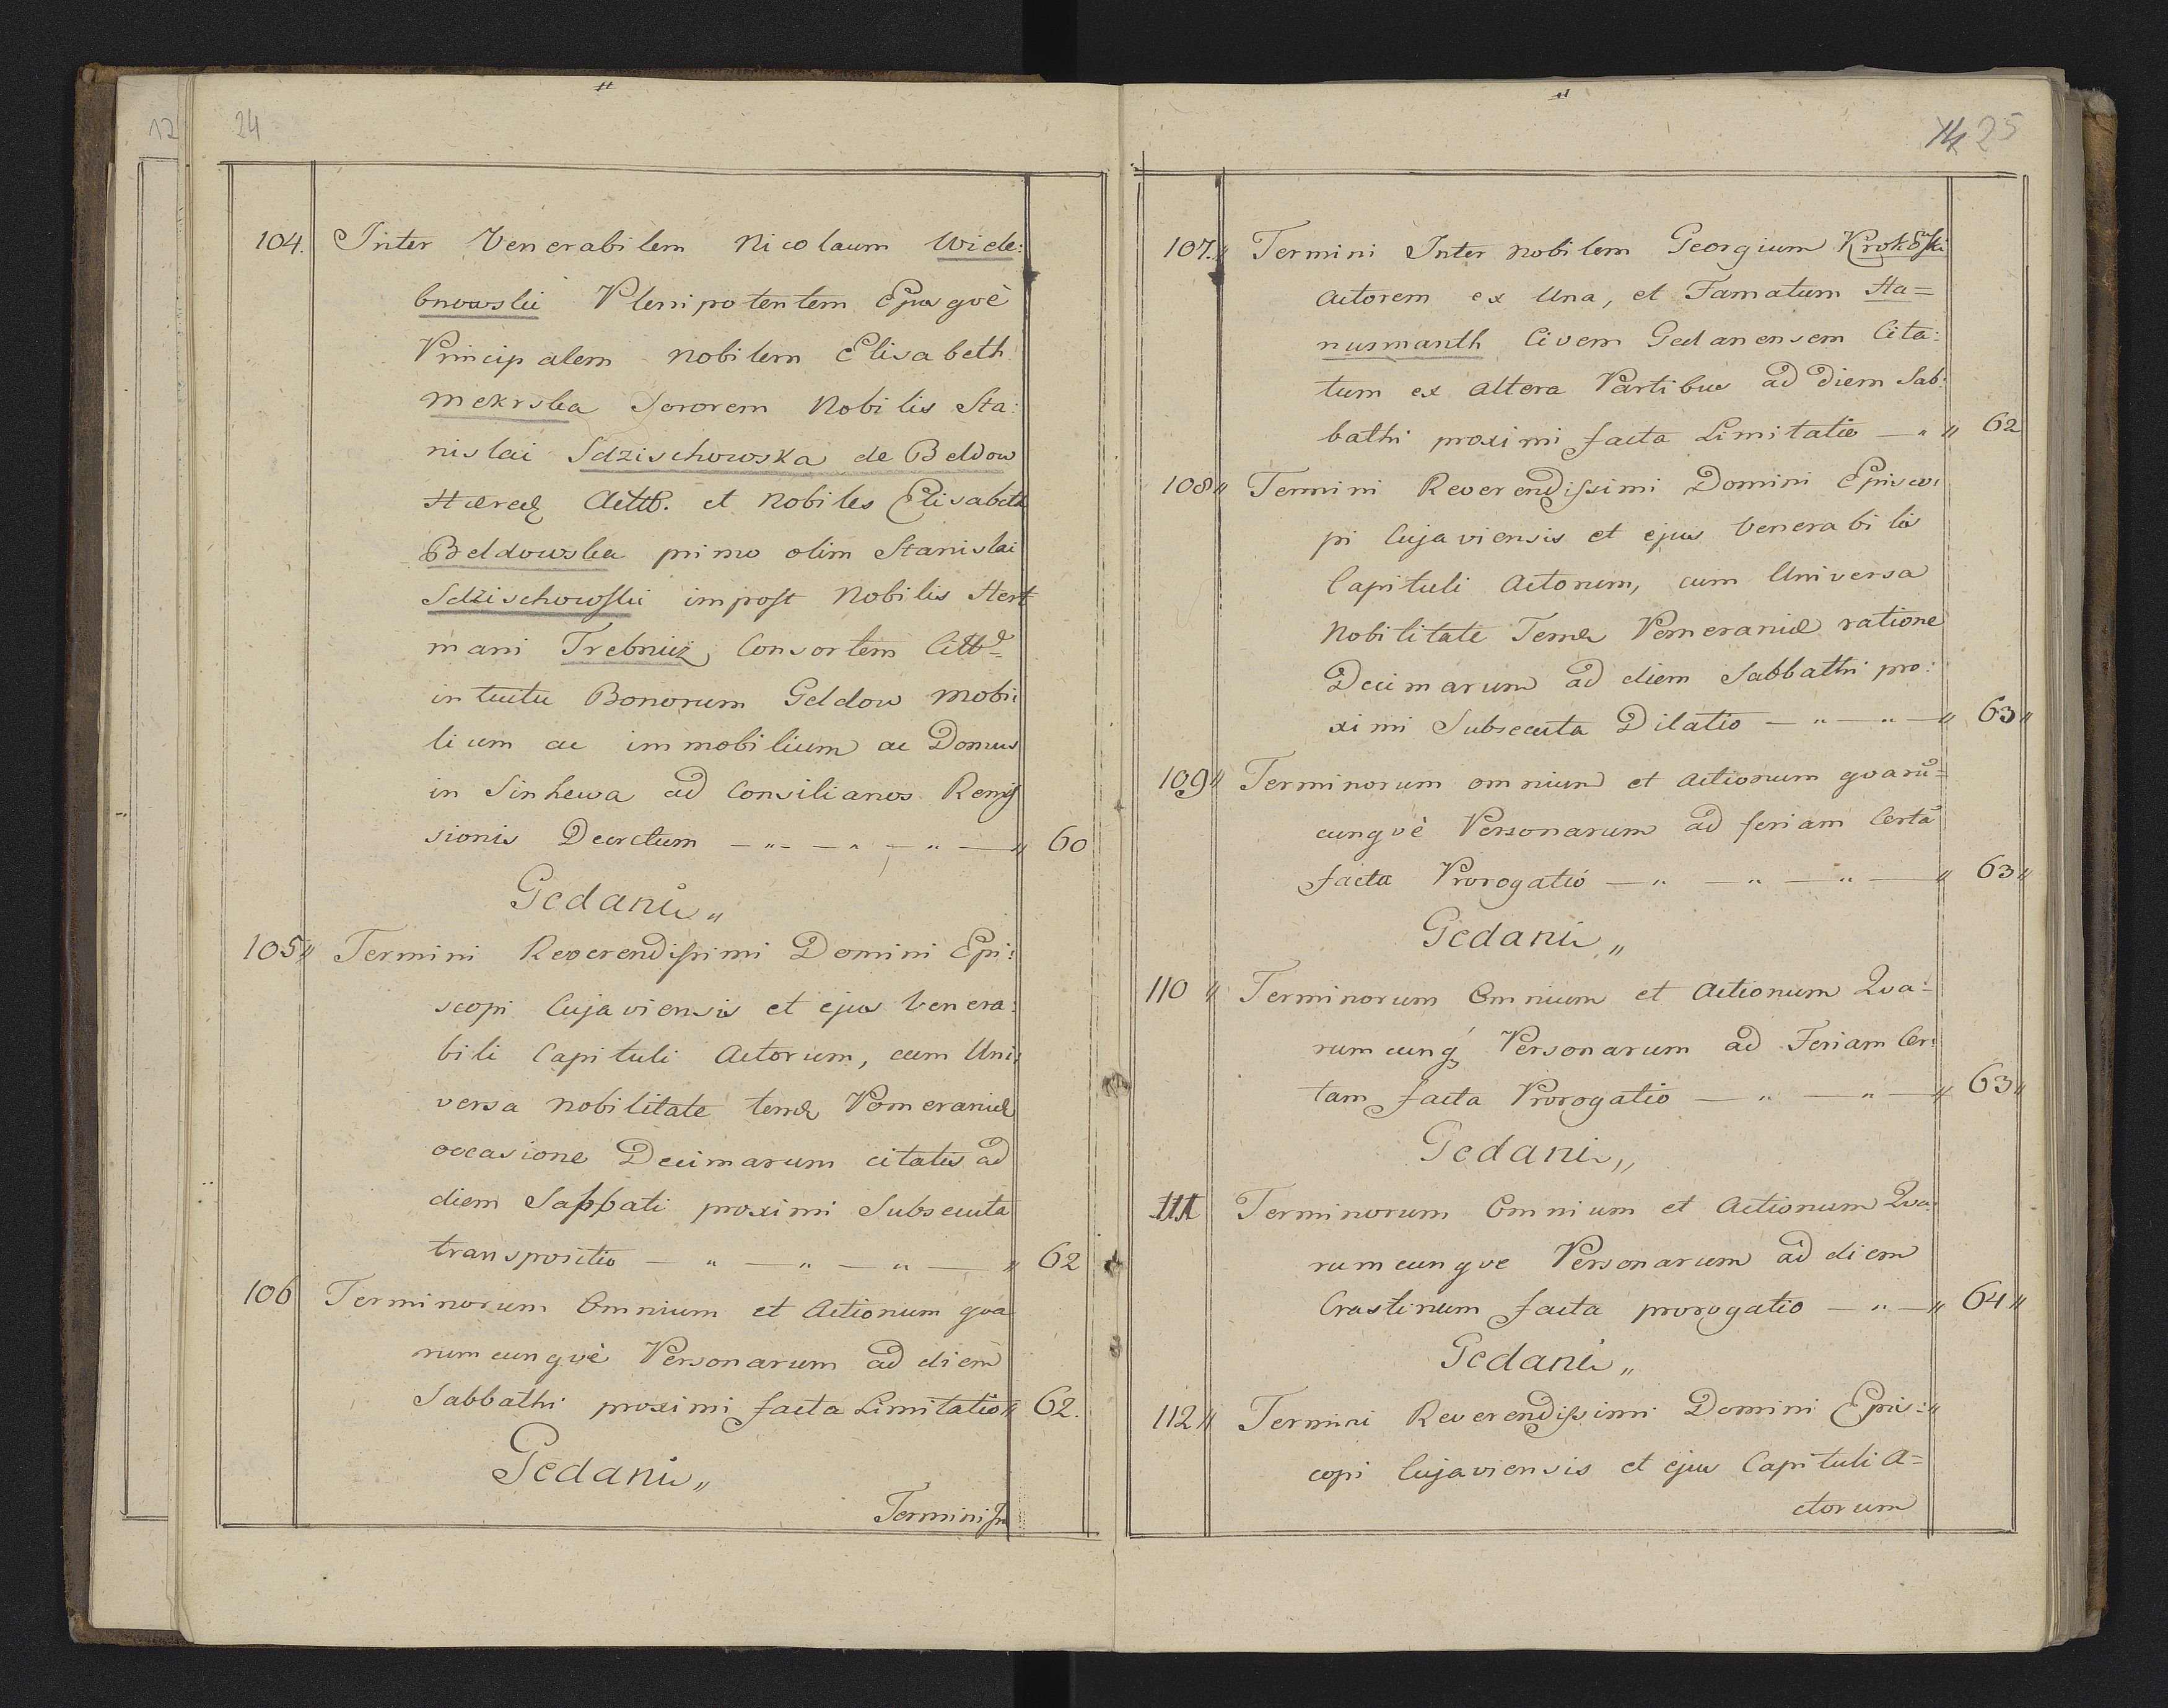 24
104. Inter Venerabilem Nicolaum Wide:
bnowslii Plenipotentem Ejusqvè
Principalem nobilem Elisabeth
Mekrska Sororem Nobilis Sta:
nislai Sdzischowska de Beldow
et Nobiles Elisabeth
Beldowska primo olim Stanislai
Sdzischowski impost Nobilis Hert
mani Trebniiz Consortem
intuitu Bonorum Geldow mobi:
lium ac immobilium ac Domus
in Sinhewa ad Consilianos Remis
sionis Decretum — " — " — " — " 60
Gedani „
105 " Termini Reverendissimi Domini Epi:
scopi Cujaviensis et ejus Venera:
bili Capituli Actorum, cum Uni:
versa nobilitate terræ Pomeraniæ
occasione Decimarum citatis ad
diem Sabbati proximi Subsecuta
transpositio — " — " — " — " 62
106 Terminorum Omnium et Actionum qva
rumcunqvè Personarum ad diem̄
Sabbathi proximi facta Limitatio " 62.
Gedani „
Termini In
25
107. " Termini Inter nobilem Georgium Krokoski
Actorem ex Una, et Famatum Ha=
nusmanth Civem Gedanensem Cita:
tum ex altera Partibus ad Diem Sab:
bathi proximi facta Limitatio — " " 62
108 " Termini Reverendissimi Domini Episco:
pi Cujaviensis et ejus Venerabilis
Capituli Actorum, cum Universa
Nobilitate Terræ Pomeraniæ ratione
Decimarum ad diem Sabbathi pro:
ximi Subsecuta Dilatio — " — " — " 63 "
109 " Terminorum omnium et actionum qvarū=
cunqvè Personarum ad feriam Certā
facta Prorogatio — " — " — " — " 63 "
Gedani „
110 " Terminorum Omnium et Actionum Qva:
rumcunq Personarum ad Feriam Cer:
tam facta Prorogatio — " — " — " 63 "
Gedani „
111 Terminorum Omnium et Actionum Qva:
rumcunqve Personarum ad diem
Crastinum facta prorogatio — " — " 64 "
Gedani „
112 " Termini Reverendissimi Domini Epis: "
copi Cujaviensis et ejus Capituli A=
ctorum